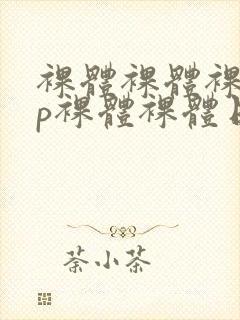 裸體裸體裸
p裸體裸體
荼小茶